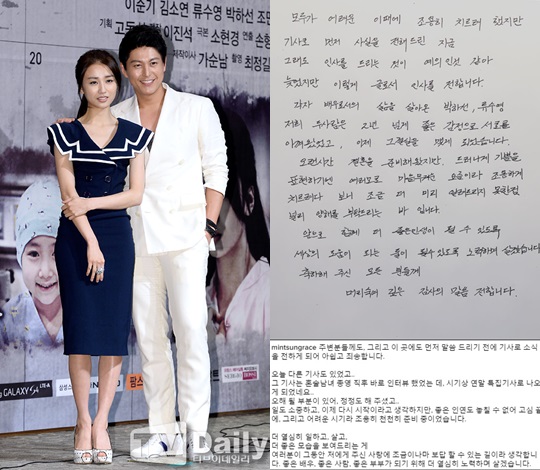 이준기 김소연 류수영 박하선 조민
기획 이진석 극본 소현경 연출 손형
제작사 가순남 촬영 최정길
20
GALAXY S4 LTE-A
TV Daily
티브이데일리
모두가 어려운 이때에 조용히 치르려 했지만
기사로 먼저 사실을 전해드린 지금
그래도 인사를 드리는 것이 예의인것 같아
늦었지만 이렇게 글로서 인사를 전합니다.
각자 배우로서의 삶을 살아온 박하선, 류수영
저희 두사람은 2년 넘게 좋은 감정으로 서로를
아껴왔었고, 이제 그 결실을 맺게 되었습니다.
오랫시간 결혼을 준비해왔지만, 드러내게 기쁨을
표현하기엔 여러모로 마음무거운 요즘이라 조용하게
치르려다 보니 조금 더 미리 알려드리지 못한점
널리 양해를 부탁드리는 바 입니다.
앞으로 함께 더 좋은인생이 될 수 있도록
세상의 도움이 되는 삶이 될수있도록 노력하며 살겠습니다.
축하해 주신 모든 분들께
머리숙여 깊은 감사의 말을 전합니다.
mintsungrace 주변분들께도, 그리고 이 곳에도 먼저 말씀 드리기 전에 기사로 소식
을 전하게 되어 아쉽고 죄송합니다.
오늘 다른 기사도 있었고..
그 기사는 혼술남녀 종영 직후 바로 인터뷰 했었는 데, 시기상 연말 특집기사로 나오
게 되었네요..
오해 될 부분이 있어, 정정도 해 주셨고.
일도 소중하고, 이제 다시 시작이라고 생각하지만, 좋은 인연도 놓칠 수 없어 고심 끝
에, 그리고 어려운 시기라 조용히 천천히 준비 중이었습니다.
더 열심히 일하고, 살고,
더 좋은 모습을 보여드리는 게
여러분이 그동안 저에게 주신 사랑에 조금이나마 보답 할 수 있는 길이라 생각합니
다. 좋은 배우, 좋은 사람, 좋은 부부가 되기 위해 더 열심히 노력하며 살겠습니다.